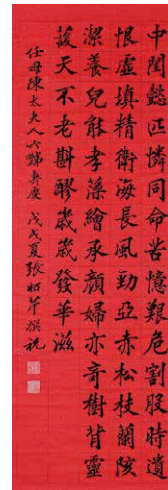 中閨懿匹憐同命苦憶艱危割股時遺
恨虛填精衛海長風勁亞赤松枝蘭陔
潔養兒能孝藻繪承顏婦亦奇樹背靈
諼天不老斟醪歲歲發華滋
任母陳太夫人六壽慶 戊戌夏張昭芹撰祝